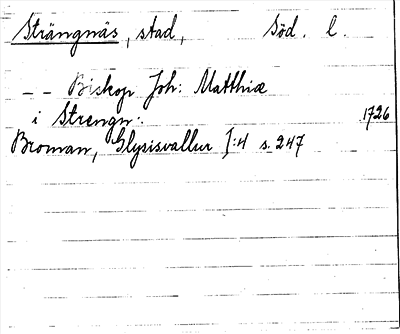 Strängnäs, stad, Söd. l.
– – Biskop Joh: Matthiæ
i Strengn: 1726
Broman, Glysisvallur I:4 s. 247